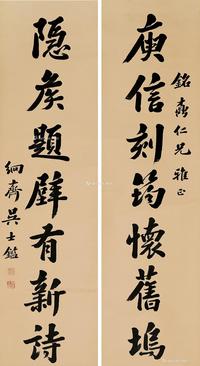 銘彝仁兄雅正
庾信刻筠懷舊塢
隱侯題壁有新詩
絅齋吳士鑑